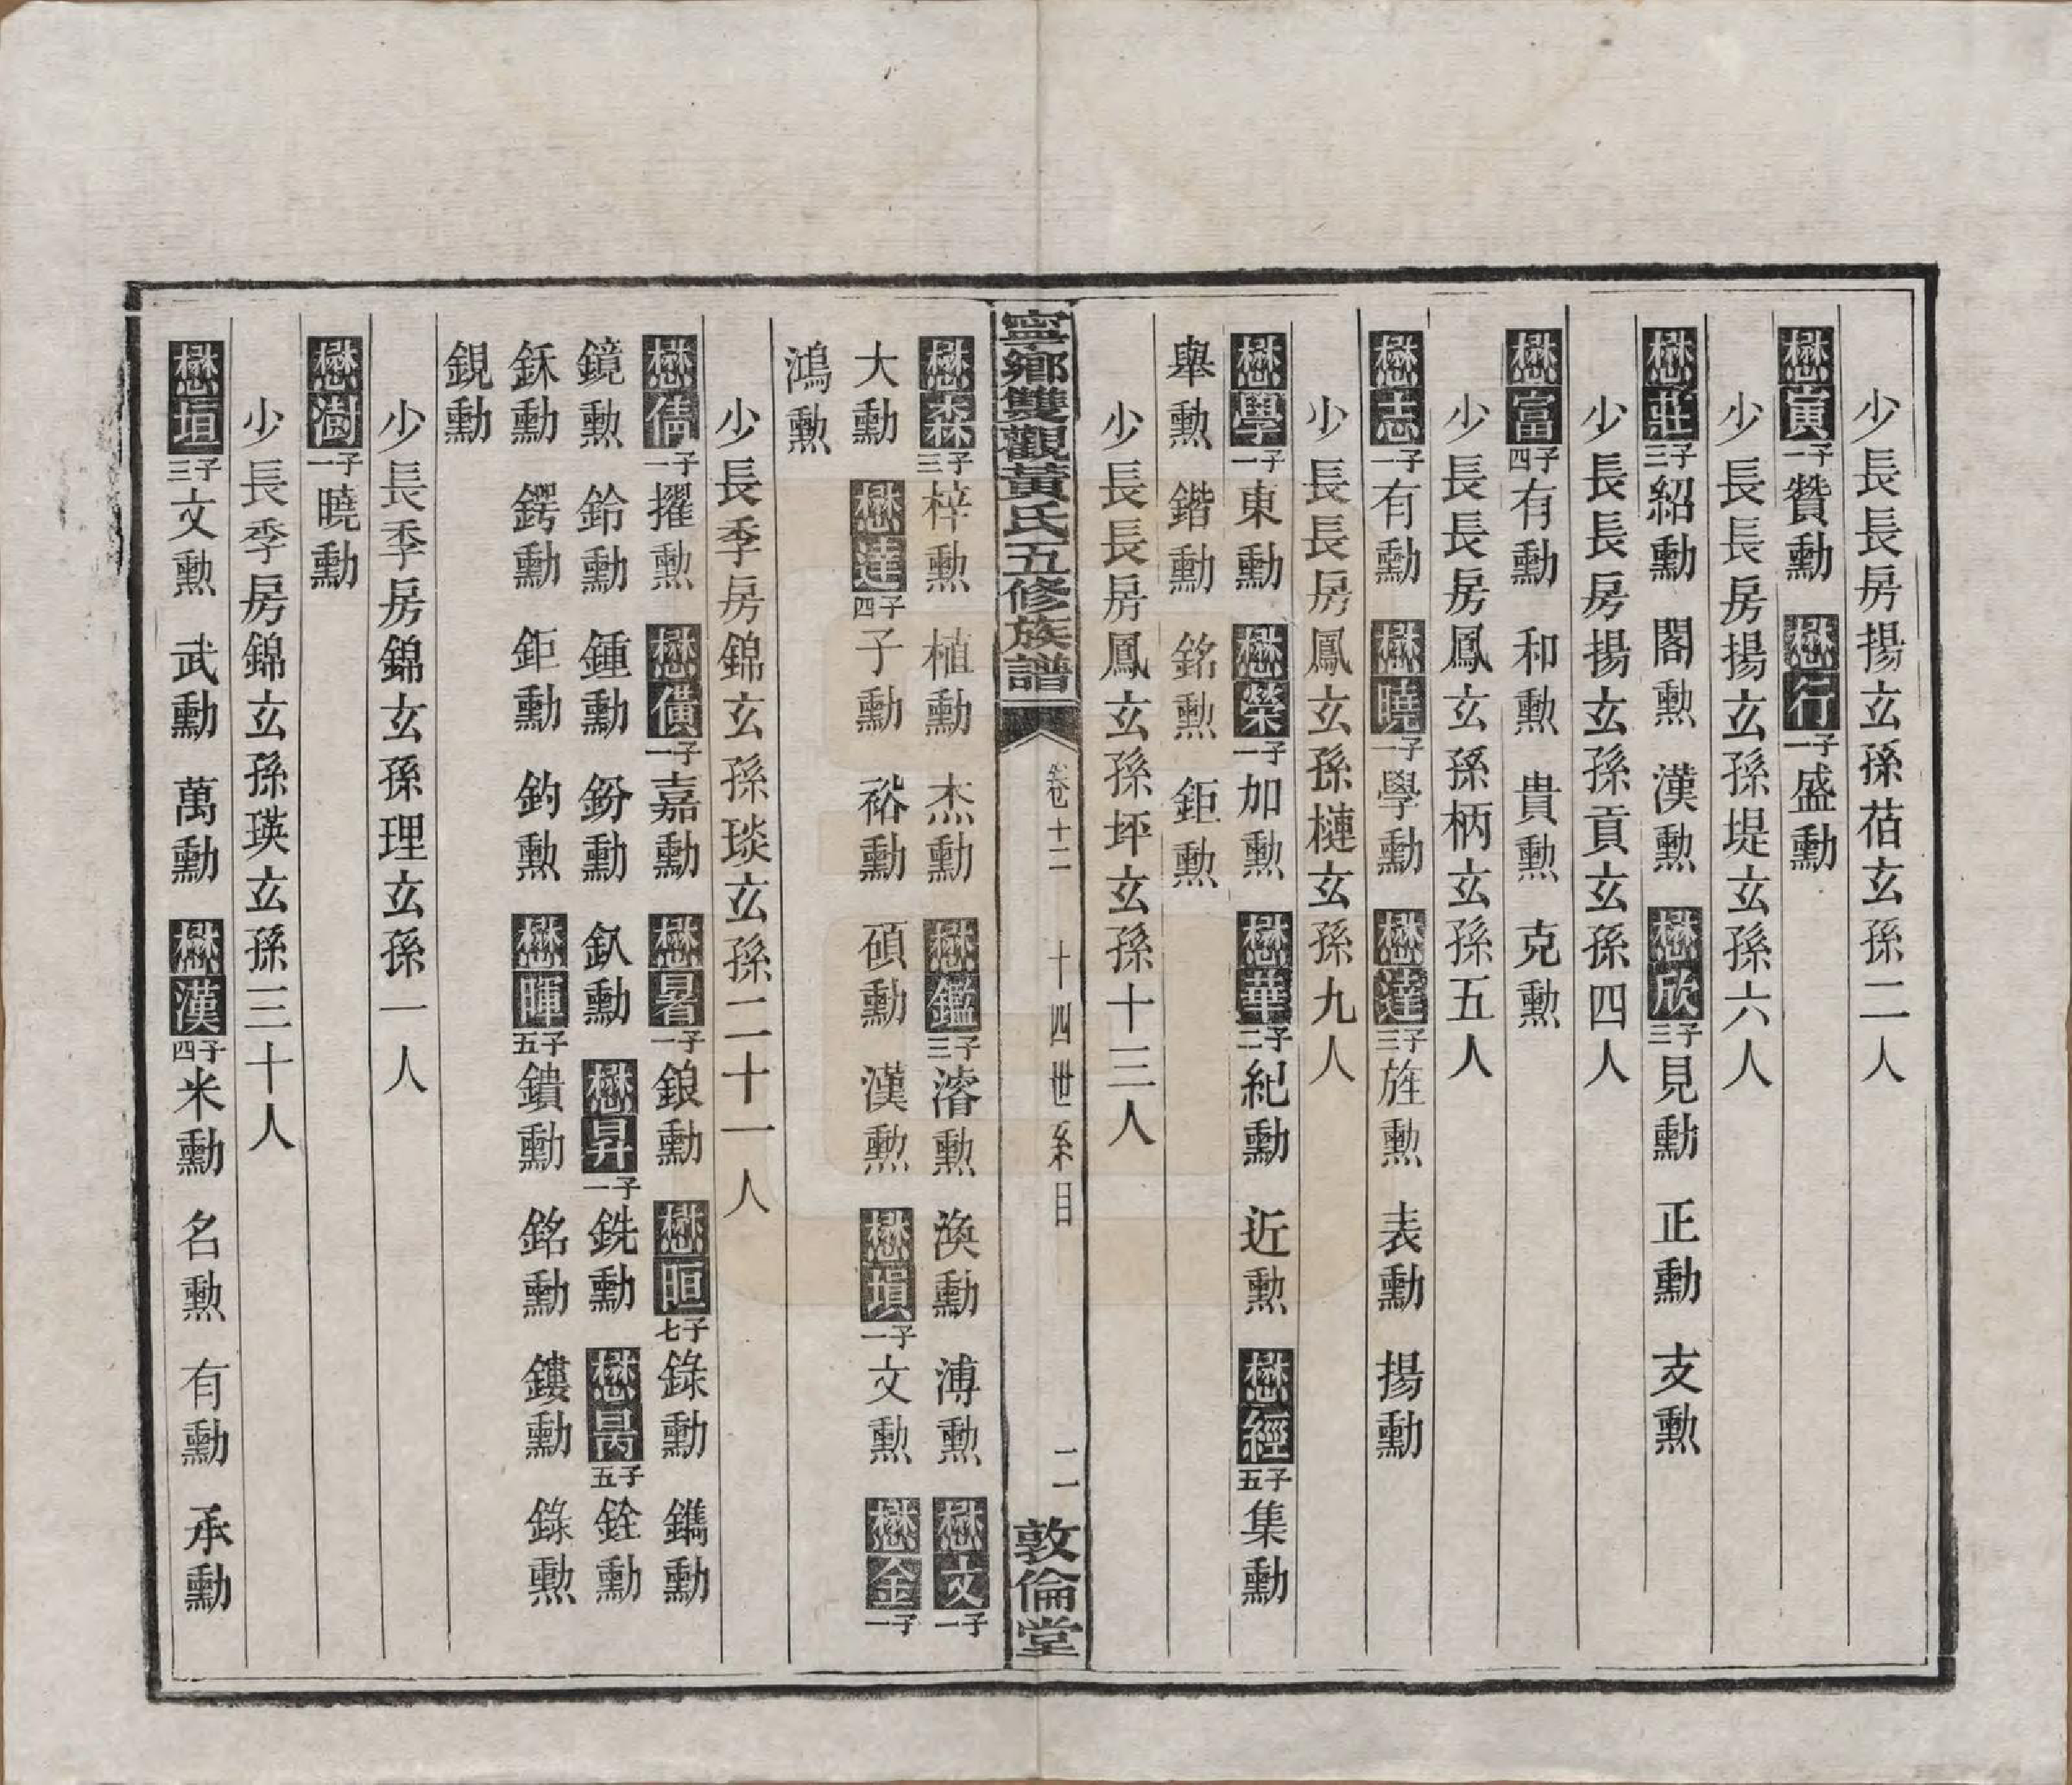 少長長房揚玄孫萂玄孫二人
懋寅子一贊勳　懋行子一盛勳
少長長房揚玄孫堤玄孫六人
懋莊子三紹勳　閣勳　漢勳　懋欣子三見勳　正勳　支勳
少長長房揚玄孫貢玄孫四人
懋富子四有勳　和勳　貴勳　克勳
少長長房鳳玄孫柄玄孫五人
懋志子一有勳　懋曉子一學勳　懋達子三旌勳　表勳　揚勳
少長長房鳳玄孫槤玄孫九人
懋學子一東勳　懋榮子一加勳　懋華子二紀勳　近勳　懋經子五集勳
舉勳　鍇勳　銘勳　鉅勳
少長長房鳳玄孫坪玄孫十三人
寧鄉雙觀黃氏五修族譜　卷十二　十四世系目　二　敦倫堂
懋森子三梓勳　植勳　杰勳　懋鑑子三濬勳　渙勳　溥勳　懋文子一
大勳　懋達子四子勳　裕勳　碩勳　漢勳　懋塤子一文勳　懋金子一
鴻勳
少長季房錦玄孫琰玄孫二十一人
懋儁子一擢勳　懋儣子一嘉勳　懋暑子一鋃勳　懋暅子七錄勳　鐫勳
鏡勳　鈴勳　鍾勳　鈖勳　釞勳　懋昇子一銑勳　懋昺子五銓勳
鉌勳　鍔勳　鉅勳　鈞勳　懋暉子五鐀勳　銘勳　鏤勳　錄勳
鋧勳
少長季房錦玄孫理玄孫一人
懋澍子一曉勳
少長季房錦玄孫瑛玄孫三十人
懋垣子三文勳　武勳　萬勳　懋漢子四米勳　名勳　有勳　承勳